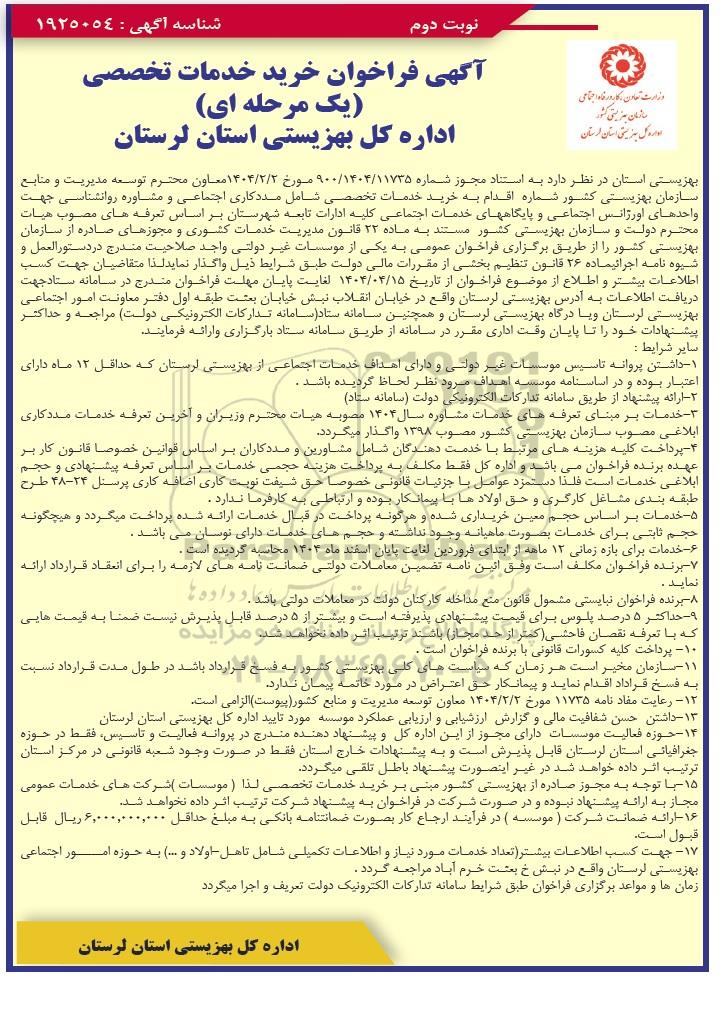 نوبت دوم
شناسه آگهی : ۱۹۲۵۰۵۴
وزارت تعاون، کار و رفاه اجتماعی
سازمان بهزیستی کشور
اداره کل بهزیستی استان لرستان
آگهی فراخوان خرید خدمات تخصصی
(یک مرحله ای)
اداره کل بهزیستی استان لرستان
بهزیستی استان در نظر دارد به استناد مجوز شماره ۹۰۰/۱۴۰۴/۱۱۷۳۵ مورخ ۱۴۰۴/۲/۲معاون محترم توسعه مدیریت و منابع
سازمان بهزیستی کشور شماره اقدام به خرید خدمات تخصصی شامل مددکاری اجتماعی و مشاوره روانشناسی جهت
واحدهای اورژانس اجتماعی و پایگاههای خدمات اجتماعی کلیه ادارات تابعه شهرستان بر اساس تعرفه های مصوب هیات
محترم دولت و سازمان بهزیستی کشور مستند به ماده ۲۲ قانون مدیریت خدمات کشوری و مجوزهای صادره از سازمان
بهزیستی کشور را از طریق برگزاری فراخوان عمومی به یکی از موسسات غیر دولتی واجد صلاحیت مندرج دردستورالعمل و
شیوه نامه اجرائیماده ۲۶ قانون تنظیم بخشی از مقررات مالی دولت طبق شرایط ذیل واگذار نمایدلذا متقاضیان جهت کسب
اطلاعات بیشتر و اطلاع از موضوع فراخوان از تاریخ ۱۴۰۴/۰۴/۱۵ لغایت پایان مهلت فراخوان مندرج در سامانه ستادجهت
دریافت اطلاعات به آدرس بهزیستی لرستان واقع در خیابان انقلاب نبش خیابان بعثت طبقه اول دفتر معاونت امور اجتماعی
بهزیستی لرستان ویا درگاه بهزیستی لرستان و همچنین سامانه ستاد(سامانه تدارکات الکترونیکی دولت) مراجعه و حداکثر
پیشنهادات خود را تا پایان وقت اداری مقرر در سامانه از طریق سامانه ستاد بارگزاری وارائه فرمایند.
سایر شرایط :
۱-داشتن پروانه تاسیس موسسات غیر دولتی و دارای اهداف خدمات اجتماعی از بهزیستی لرستان که حداقل ۱۲ ماه دارای
اعتبار بوده و در اساسنامه موسسه اهداف مرود نظر لحاظ گردیده باشد .
۲-ارائه پیشنهاد از طریق سامانه تدارکات الکترونیکی دولت (سامانه ستاد)
۳-خدمات بر مبنای تعرفه های خدمات مشاوره سال۱۴۰۴ مصوبه هیات محترم وزیران و آخرین تعرفه خدمات مددکاری
ابلاغی مصوب سازمان بهزیستی کشور مصوب ۱۳۹۸ واگذار میگردد.
۴-پرداخت کلیه هزینه های مرتبط با خدمت دهندگان شامل مشاورین و مددکاران بر اساس قوانین خصوصا قانون کار بر
عهده برنده فراخوان می باشد و اداره کل فقط مکلف به پرداخت هزینه حجمی خدمات بر اساس تعرفه پیشنهادی و حجم
ابلاغی خدمات است فلذا دستمزد عوامل با جزئیات قانونی خصوصا حق شیفت نوبت کاری اضافه کاری پرسنل ۲۴-۴۸ طرح
طبقه بندی مشاغل کارگری و حق اولاد ها با پیمانکار بوده و ارتباطی به کارفرما ندارد .
۵-خدمات بر اساس حجم معین خریداری شده و هرگونه پرداخت در قبال خدمات ارائه شده پرداخت میگردد و هیچگونه
حجم ثابتی برای خدمات بصورت ماهیانه وجود نداشته و حجم های خدمات دارای نوسان می باشد .
۶-خدمات برای بازه زمانی ۱۲ ماهه از ابتدای فروردین لغایت پایان اسفند ماه ۱۴۰۴ محاسبه گردیده است .
۷-برنده فراخوان مکلف است وفق آئین نامه تضمین معاملات دولتی ضمانت نامه های لازمه را برای انعقاد قرارداد ارائه
نماید .
۸-برنده فراخوان نبایستی مشمول قانون منع مداخله کارکنان دولت در معاملات دولتی باشد .
۹-حداکثر ۵ درصد پلوس برای قیمت پیشنهادی پذیرفته است و بیشتر از ۵ درصد قابل پذیرش نیست ضمنا به قیمت هایی
که با تعرفه نقصان فاحشی(کمتر از حد مجاز) باشند ترتیب اثر داده نخواهد شد.
۱۰- پرداخت کلیه کسورات قانونی با برنده فراخوان است .
۱۱-سازمان مخیر است هر زمان که سیاست های کلی بهزیستی کشور به فسخ قرارداد باشد در طول مدت قرارداد نسبت
به فسخ قراداد اقدام نماید و پیمانکار حق اعتراض در مورد خاتمه پیمان ندارد.
۱۲- رعایت مفاد نامه ۱۱۷۳۵ مورخ ۱۴۰۴/۲/۲ معاون توسعه مدیریت و منابع کشور(پیوست)الزامی است.
۱۳-داشتن حسن شفافیت مالی و گزارش ارزشیابی و ارزیابی عملکرد موسسه مورد تایید اداره کل بهزیستی استان لرستان
۱۴-حوزه فعالیت موسسات دارای مجوز از این اداره کل و پیشنهاد دهنده مندرج در پروانه فعالیت و تاسیس، فقط در حوزه
جغرافیائی استان لرستان قابل پذیرش است و به پیشنهادات خارج استان فقط در صورت وجود شعبه قانونی در مرکز استان
ترتیب اثر داده خواهد شد در غیر اینصورت پیشنهاد باطل تلقی میگردد.
۱۵-با توجه به مجوز صادره از بهزیستی کشور مبنی بر خرید خدمات تخصصی لذا ( موسسات )شرکت های خدمات عمومی
مجاز به ارائه پیشنهاد نبوده و در صورت شرکت در فراخوان به پیشنهاد شرکت ترتیب اثر داده نخواهد شد.
۱۶-ارائه ضمانت شرکت ( موسسه ) در فرآیند ارجاع کار بصورت ضمانتنامه بانکی به مبلغ حداقل ۶,۰۰۰,۰۰۰,۰۰۰ ریال قابل
قبول است.
۱۷- جهت کسب اطلاعات بیشتر(تعداد خدمات مورد نیاز و اطلاعات تکمیلی شامل تاهل-اولاد و ...) به حوزه امــــور اجتماعی
بهزیستی لرستان واقع در نبش خ بعثت خرم آباد مراجعه گردد .
زمان ها و مواعد برگزاری فراخوان طبق شرایط سامانه تدارکات الکترونیک دولت تعریف و اجرا میگردد
اداره کل بهزیستی استان لرستان